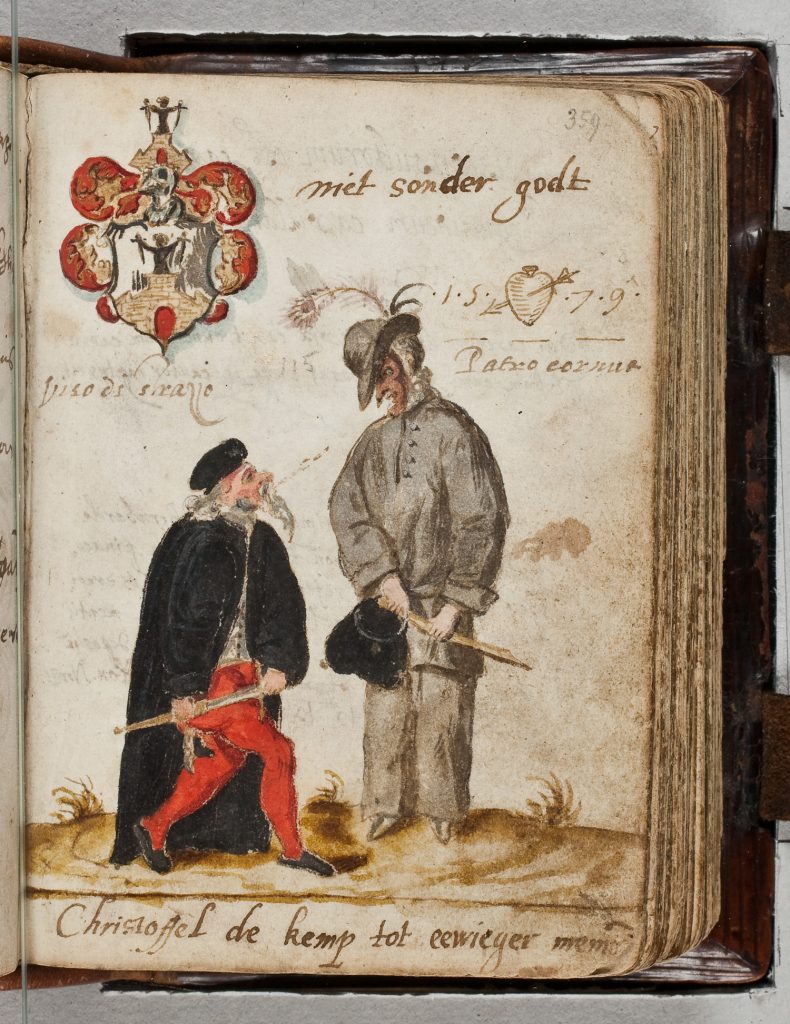 359
niet sonder godt
·1·5· ·7·9·
Patro cornua
Viso di
Christoffel de kemp tot eewieger memo